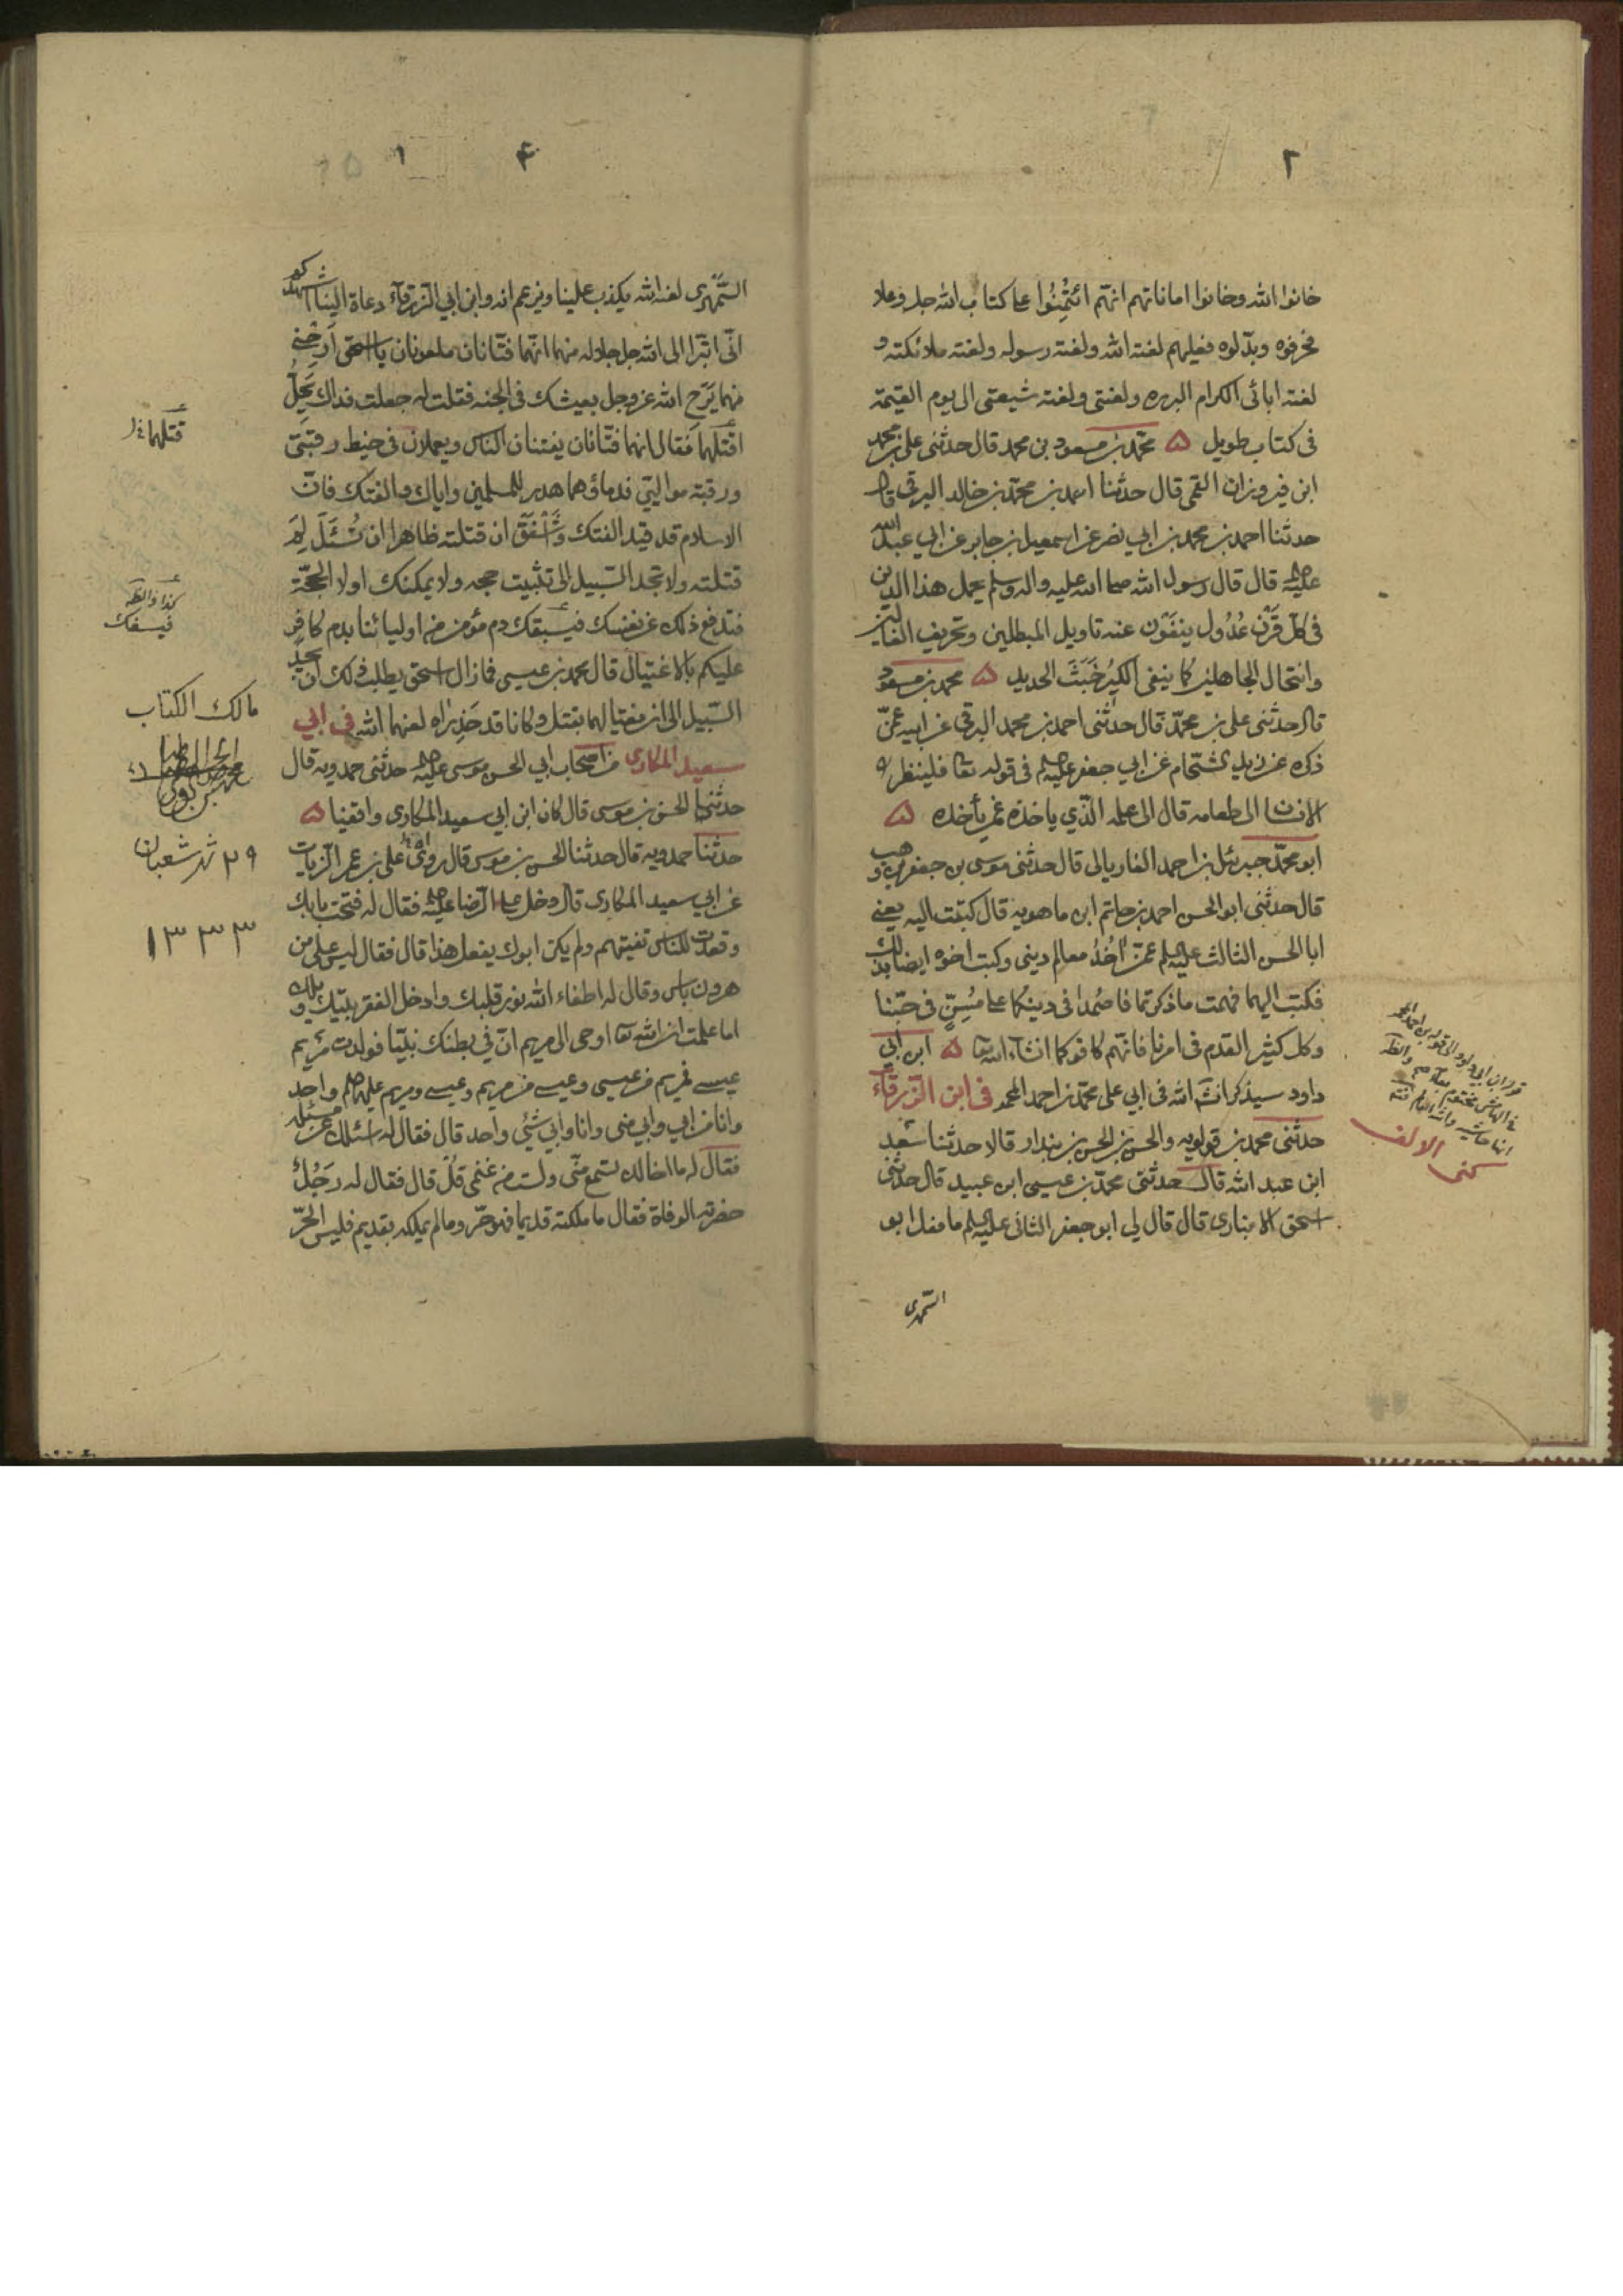 ٢
خانوا الله وخانوا اماناتهم انهم ائتمنوا على كتاب الله جل وعلا
فحرفوه وبدلوه فعليهم لعنة الله ولعنة رسوله ولعنة ملائكته و
لعنة ابائى الكرام البرره ولعنتى ولعنة شيعتى الى يوم القيمة
فى كتاب طويل ۵ محمد بن مسعود بن محمد قال حدثنى على بن محمد
ابن فيروزان القمى قال حدثنا احمد بن محمد بن خالد البرقى قال
حدثنا احمد بن محمد بن ابي نصر عن اسمعيل بن جابر عن ابي عبد الله
عليه قال قال رسول الله صلى الله عليه واله وسلم يحمل هذا الدين
فى كل قرن عُدُول ينفَون عنه تاويل المبطلين وتحريف الغالين
وانتحال الجاهلين كما ينفى الكيرُ خَبَثَ الحديد ۵ محمد بن مسعود
قال حدثنى على بن محمد قال حدثنى احمد بن محمد البرقى عن ابيه عمن
ذكره عن زيد الشحام عن ابي جعفر عليه السلم فى قوله تعا فلينظر
الانسا الى طعامه قال الى علمه الذي ياخذه عمن يأخذه ۵
ابو محمد جبرئل بن احمد الفاريابى قال حدثنى موسى بن جعفر بن وهب
قال حدثنى ابو الحسن احمد بن حاتم ابن ماهويه قال كتبت اليه يعنى
ابا الحسن الثالث عليه السلم عمن اُخُذُ معالم دينى وكتب اخوه ايضا بذلك
فكتب اليهما فهمت ما ذكرتما فاصمُدا فى دينكما على مُسِنٍّ فى حبّنا
وكل كثير القدم فى امرنا فانهم كافوكما انشاء الله تعا ۵ ابن ابي
داود سيذكر انشَ الله فى ابي على محمد بن احمد المحمد فى ابن الزرقاء
حدثنى محمد بن قولويه والحسن بن الحسن بن بندار قالا حدثنا سعد
ابن عبد الله قال حدثنى محمد بن عيسى ابن عبيد قال حدثنى
اسحق الانبارى قال قال لي ابو جعفر الثانى عليه السلم ما فعل ابو
السمهرى
كنى الالف
١ ۴
السَّمهرى لعنه الله يكذب علينا ويزعم انه وابن ابي الزرقاء دعاة الينا اشهدكم
انى اتبرا الى الله جل جلاله منهما انهما فتانان ملعونان يا اسحق ارحنى
منهما يرح الله عز وجل بعيشك فى الجنه فقلت له جعلت فداك يحل
اقتلهما فقال انهما فتانان يفتنان الناس ويعملان فى خيط رقبتى
ورقبة موالى فدمائهما هدر للمسلمين واياك والفتك فان
الاسلام قد قيد الفتك وأشفق ان قتلته ظاهرا ان تسئل لِمَ
قتلته ولا تجد السبيل الى تثبيت حجه ولا يمكنك ادلا الحجة
فتدفع ذلك عن نفسك فيسبقك دم مؤمن من اوليائنا بدم كافر
عليكم بالاغتيال قال محمد بن عيسى فما زال اسحق يطلب ذلك ان يجد
السبيل الى ان يغتالهما بقتل وكانا قد حذراه لعنهما الله فى ابي
سعيد المكارى من اصحاب ابي الحسن موسى عليه حدثنى حمدويه قال
حدثنا الحسن بن موسى قال كان ابن ابي سعيد المكارى واقفيا ۵
حدثنا حمدويه قال حدثنا الحسن بن موسى قال روى على بن عمر الزيات
عن ابي سعيد المكارى قال دخل على الرضا عليه فقال له فتحت بابك
وقعدت للناس تفتيهم ولم يكن ابوك يفعل هذا قال فقال ليس على من
هرون باس وقال له اطفاء الله نور قلبك وادخل الفقر بيتك ويلك
اما علمت ان الله تعا اوحى الى مريم ان فى بطنك نبيا فولدت مريم
عيسى فمريم من عيسى وعيسى من مريم وعيسى ومريم عليهما السلم واحد
وانا من ابي وابي منى وانا وابي شئى واحد قال فقال له اسئلك عن مسئلة
فقال له ما اخالك تسمع منى ولست من غنمى قُل قال فقال له رَجُلٌ
حضرته الوفاة فقال ما ملكته قديما فهو حر وما لم يملكه بقديم فليس الحر
قتلهما
كذا والظ
فيسفك
مالك الكتاب
٢٩ شهر شعبان
١٣٣٣